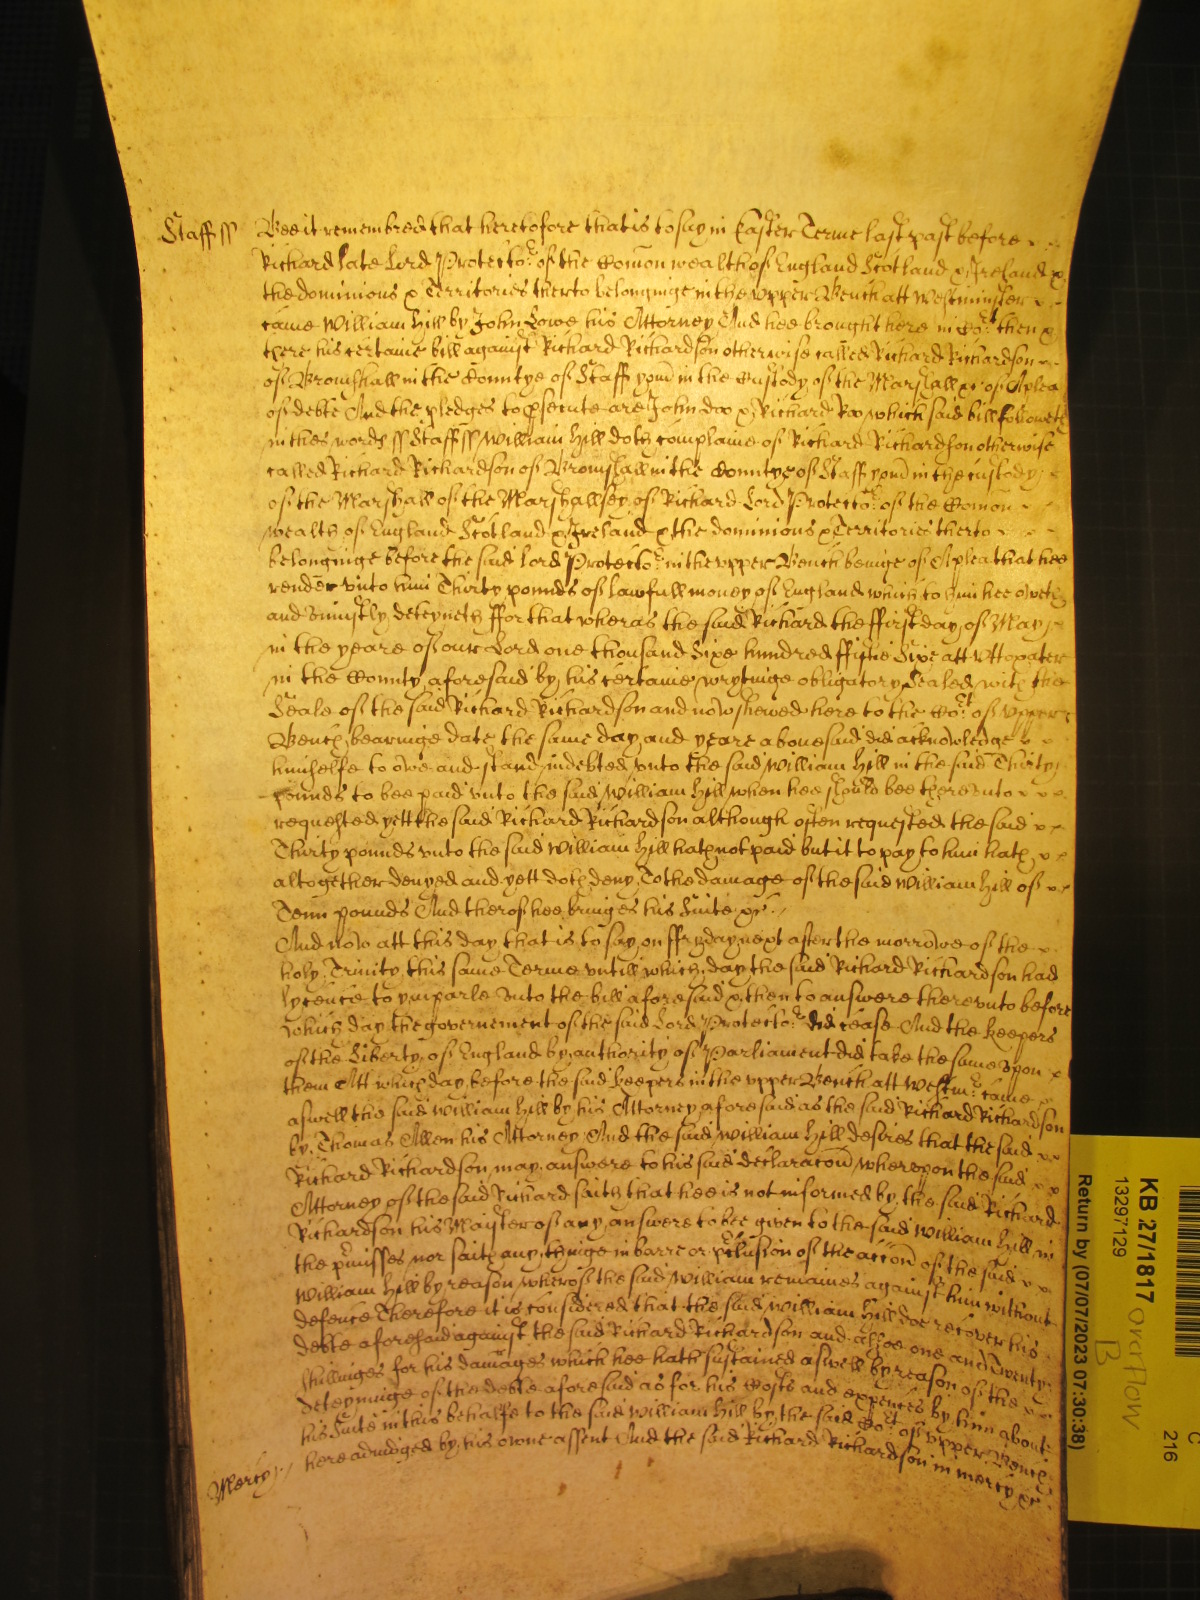 Staff ss Bee it remembred that heretofore that is to say in Easter Terme last past before
Richard late Lord Protector of the Comon wealth of England Scotland & Ireland &
the dominions & Territories therto belonginge in the upper Bench att Westminster
came William Hill by John Lowe his Attorney And hee brought here in Cort then &
there his certaine bill against Richard Richardson otherwise called Richard Richardson
of Bromshall in the Countye of Staff yom in the custody of the Marshall &c of A plea
of debte And the pledges to psecute are John doo & Richard Roo which said bill followeth
in thes words ss Staff ss William Hill doth complaine of Richard Richardson otherwise
called Richard Richardson of Bromshall in the Countye of Staff yom in the custody
of the Marshall of the Marshallsey of Richard Lord Protector of the Comon
wealth of England Scotland & Ireland & the dominions & Territories therto
belonginge before the said Lord Protector in the upper Bench beinge of A plea that hee
render vnto him Thirty pounds of lawfull money of England which to him hee oweth
and vniustly deteyneth ffor that wheras the said Richard the ffirst day of May
in the yeare of our Lord one thousand Sixe hundred ffiftie Sixe att Vttoxater
in the County aforesaid by his certaine wrytinge obligatory Sealed with the
Seale of the said Richard Richardson and now shewed here to the Cort of vpper
Bench bearinge date the same day and yeare abouesaid did acknowledge
himselfe to owe and stand indebted vnto the said William Hill in the said Thirty
pounds to bee paid vnto the said William Hill when hee should bee therevnto
requested yett the said Richard Richardson although often requested the said
Thirty pounds vnto the said William Hill hath not paid but it to pay to him hath
altogether denyed and yett doth deny To the damage of the said William Hill of
Tenn pounds And therof hee bringes his Suite &c
And now att this day that is to say on ffryday next after the morrowe of the
holy Trinity this same Terme vntill which day the said Richard Richardson had
lycence to ymparle vnto the bill aforesaid & then to answere therevnto before
which day the governement of the said Lord Protector did cease And the Keepers
of the Liberty of England by authority of Parliament did take the same vpon
them Att which day before the said Keepers in the vpper Bench att Westmr came
aswell the said William Hill by his Attorney aforesaid as the said Richard Richardson
by Thomas Allen his Attorney And the said William Hill desires that the said
Richard Richardson may answere to his said declaracon wherevpon the said
Attorney of the said Richard saith that hee is not informed by the said Richard
Richardson his Maister of any answere to bee given to the said William Hill in
the pmisses nor saith any thinge in barre or pclusion of the accon of the said
William Hill by reason wherof the said William remaines against him without
defence Therefore it is considered that the said William Hill doe recover his
debte aforesaid against the said Richard Richardson and allsoe one and Twenty
shillinges for his damages which hee hath sustained aswell by reason of the
deteyninge of the debte aforesaid as for his Costs and expences by him about
his Suite in this behalfe to the said William Hill by the said Cort of vpper Bench
here adiudged by his owne assent And the said Richard Richardson in mercy &c
Mercy
KB 27/1817
13297129
Return by (07/07/2023 07:30:38)
Overflow
B
C
216